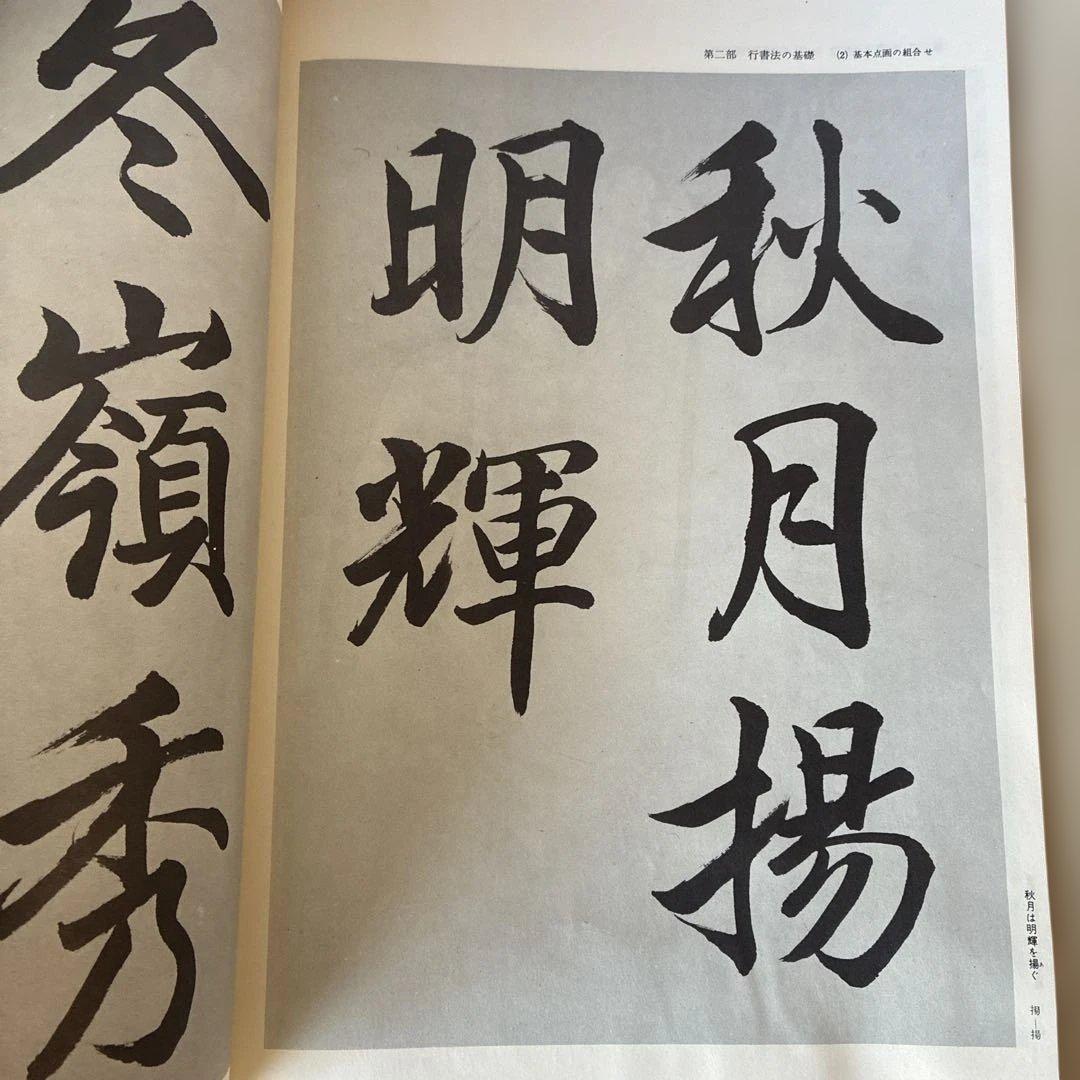 第二部 行書法の基礎 (2) 基本点画の組合せ
秋月揚
明輝
秋月は明輝を揚ぐ
あ
冬嶺秀